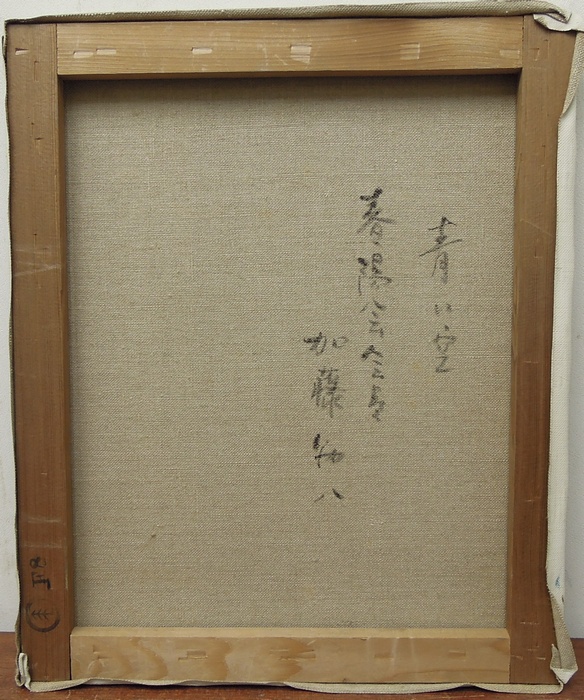 青い空
春陽会会員
加藤勘八
F8